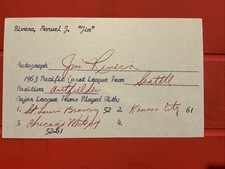 Rivera, Manuel J. "Jim"
Autograph Jim Rivera
1963 Pacific Coast League Team Seattle
Position Outfielder
Major League Teams Played With:
1. St. Louis Browns 52 2. Kansas City 61
3. Chicago White Sox 4.
52-61